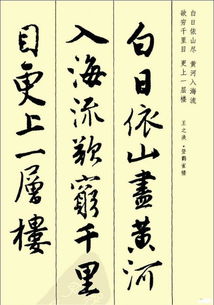 白日依山盡黃河
入海流欲窮千里
目更上一層樓
白日依山尽 黄河入海流
欲穷千里目 更上一层楼
王之涣·登鹳雀楼